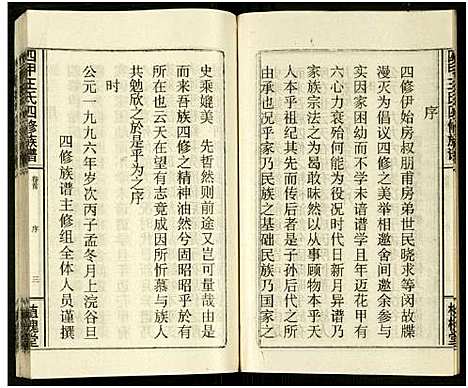 四甲王氏四修族谱
序
四修伊始房叔朋甫房弟世民晓求等闵故牒
漫灭为倡议四修之美举相邀舍间邀余参与
余辞之以幼而不学未谙谱学且年近花甲有
六心力衰殆何能为役况时代日新月异谱乃
家族宗法之为曷敢昧然以从事顾物本乎天
人本乎祖纪其先而传后者是子孙后代之功
民族乃家族之基础民族乃国家之
史乘媲美 先哲然则前途又岂可量哉由是
而来吾族四修之精神油然兮固昭昭乎於有
成也云天在望有志竟成因所忻慕与族人
共勉欣之於是乎为之序
时
公元一九九六年岁次丙子孟冬月上浣谷旦
四修族谱主修组全体人员谨撰
四甲王氏四修族谱
卷首
序
三
植槐堂